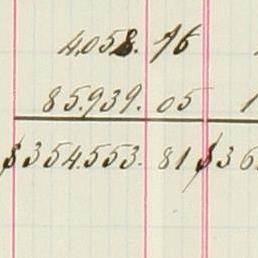 4.058. 76
85.939. 05 1
$354.553. 81 $36